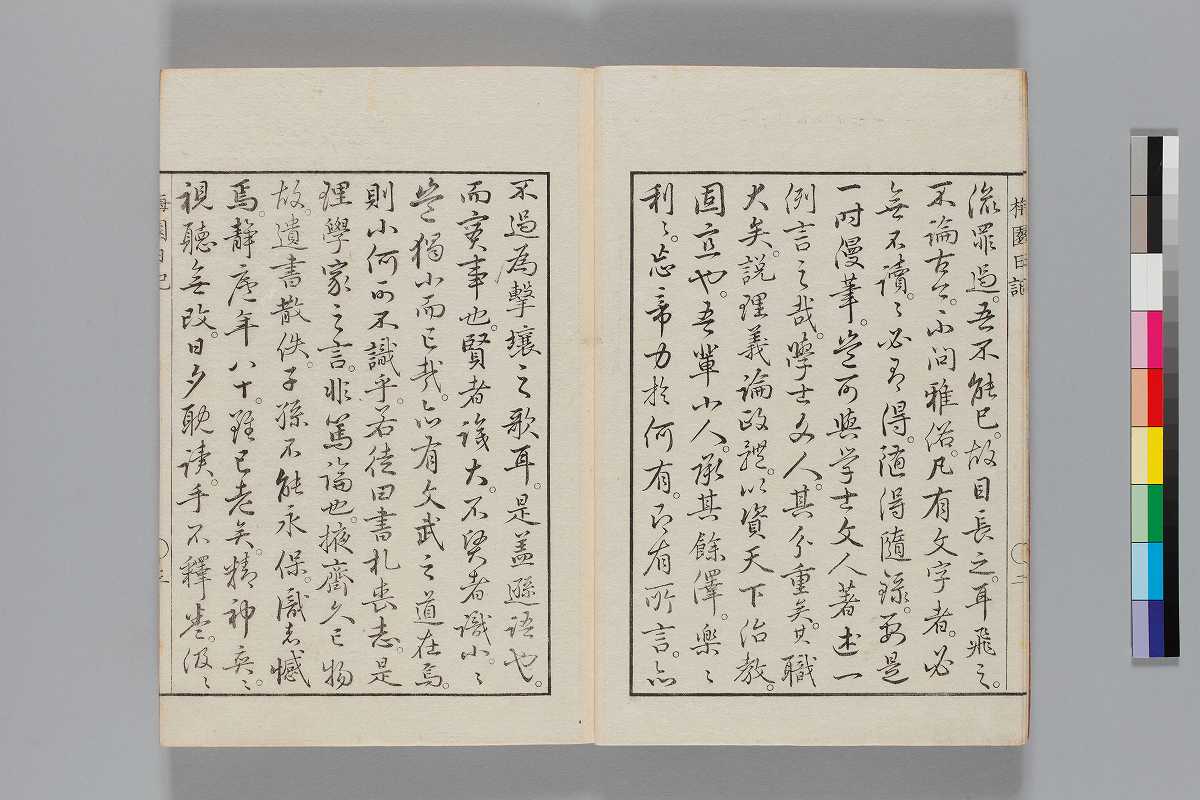 梅園日記
二
流罪過。吾不能已。故目長之。耳飛之。
不論古今。不問雅俗。凡有文字者。必
無不讀。讀必有得。隨得隨錄。要是
一時慢筆。豈可與学士文人著述一
例言之哉。學士文人。其分重矣。其職
大矣。說理義論政體。以資天下治教。
固立也。吾輩小人。承其餘澤。樂々
利々。忘帝力於何有。即有所言。亦
不過為擊壤之歌耳。是蓋遜語也。
而實事也。賢者識大。不賢者識小。々
豈獨小而已哉。亦有文武之道在焉。
則小何可不識乎。若徒曰書札喪志。是
理學家之言。非篤論也。掖齋久已物
故。遺書散佚。子孫不能永保。識者憾
焉。静廬年八十。雖已老矣。精神奕々。
視聽無改。日夕耽读。手不釋卷。汲々
梅園日記
三